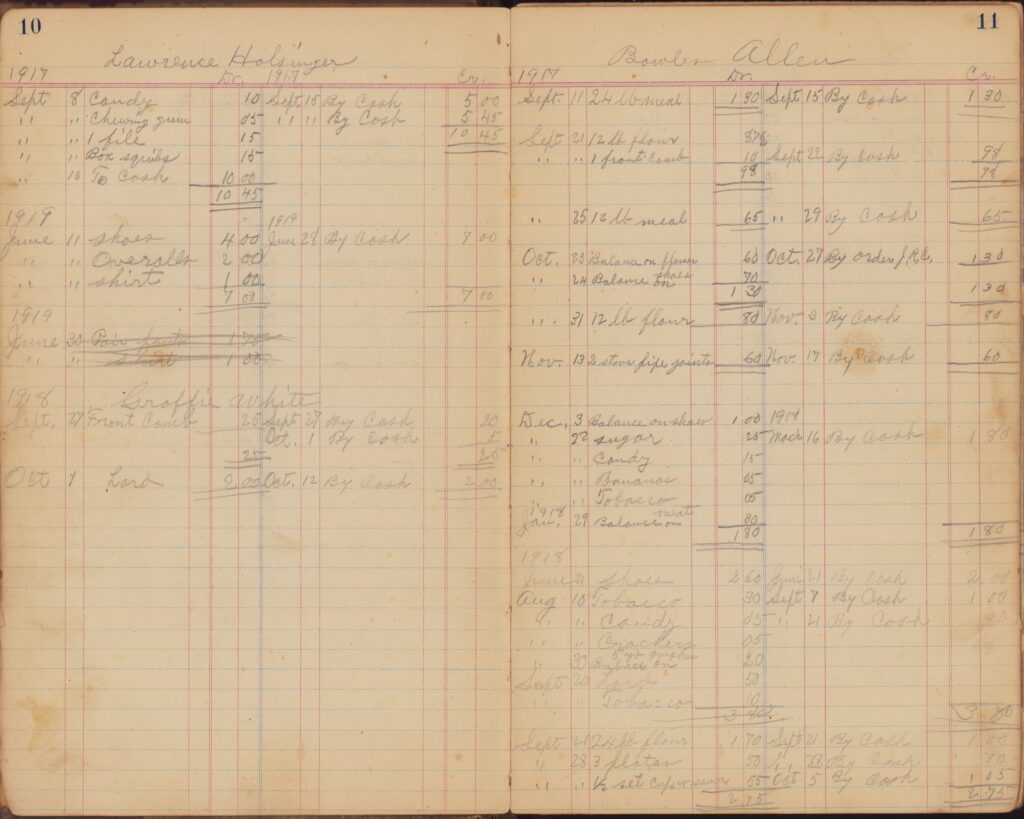 10
Lawrence Holsinger
1917 Dr. 1917 Cr.
Sept 8 Candy 10 Sept 15 By Cash 5 00
" " Chewing gum 05 " " By Cash 5 45
" " 1 file 15 10 45
" " Box squibs 15
" 10 To Cash 10 00
10 45
1919 1919
June 11 Shoes 4 00 June 28 By Cash 7 00
" " Overalls 2 00
" " Shirt 1 00
7 00 7 00
1919
June 30 Pair pants 1 70
" " Shirt 1 00
1918 Graffie White
Sept. 27 Front Comb 25 Sept 27 By Cash 20
Oct. 1 By Cash 5
25 25
Oct 7 Lard 2 00 Oct. 12 By Cash 2 00
11
Bowles Allen
1917 Dr. Cr.
Sept. 11 24 lb meal 1 30 Sept 15 By Cash 1 30
Sept 21 12 lb flour 88
" " 1 front comb 10 Sept 22 By Cash 98
98 98
" 25 12 lb meal 65 " 29 By Cash 65
Oct. 23 Balance on flour 60 Oct. 27 By order J.R.C. 1 30
" 24 Balance on shoes 70
1 30 1 30
" 31 12 lb flour 80 Nov. 3 By Cash 80
Nov. 13 2 stove pipe joints 60 Nov. 17 By Cash 60
Dec. 3 Balance on shoes 1 00 1918
" 22 sugar 25 Mach 16 By Cash 1 80
" " Candy 15
" " Bananas 05
" " Tobacco 05
1918
Jan. 29 Balance on meat 30
1 80 1 80
1918
June 21 Shoes 2 60 June 21 By Cash 2 00
Aug 10 Tobacco 30 Sept 7 By Cash 1 00
" " Candy 05 " 21 By Cash 80
" " Crackers 05
" 30 Balance on 20
Sept 20 Lard 50
" " Tobacco 10
3 80 3 80
Sept 21 24 lb flour 1 70 Sept 21 By Cash 1 00
" 28 3 plates 50 " 28 By Cash 70
" " ½ set Cups & 55 Oct 5 By Cash 1 05
2 75 2 75